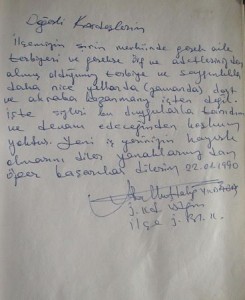 Değerli Kardeşlerim
İlçemizin şirin mevkiinde gerek aile
terbiyeni ve gerekse örf ve adetlerimizden
almış olduğunuz terbiye ve saygınlıkla
daha nice yıllarda (zamanda) dost
ve akraba kazanmanız içten değil.
işte sizleri bu duygularla tanıdım
ve devam edeceğinden kuşkum
yoktur. Yeni iş yerinizin hayırlı
olmasını diler yanaklarınızdan
öper başarılar dilerim 22.01.1990
J.
ilçe J.